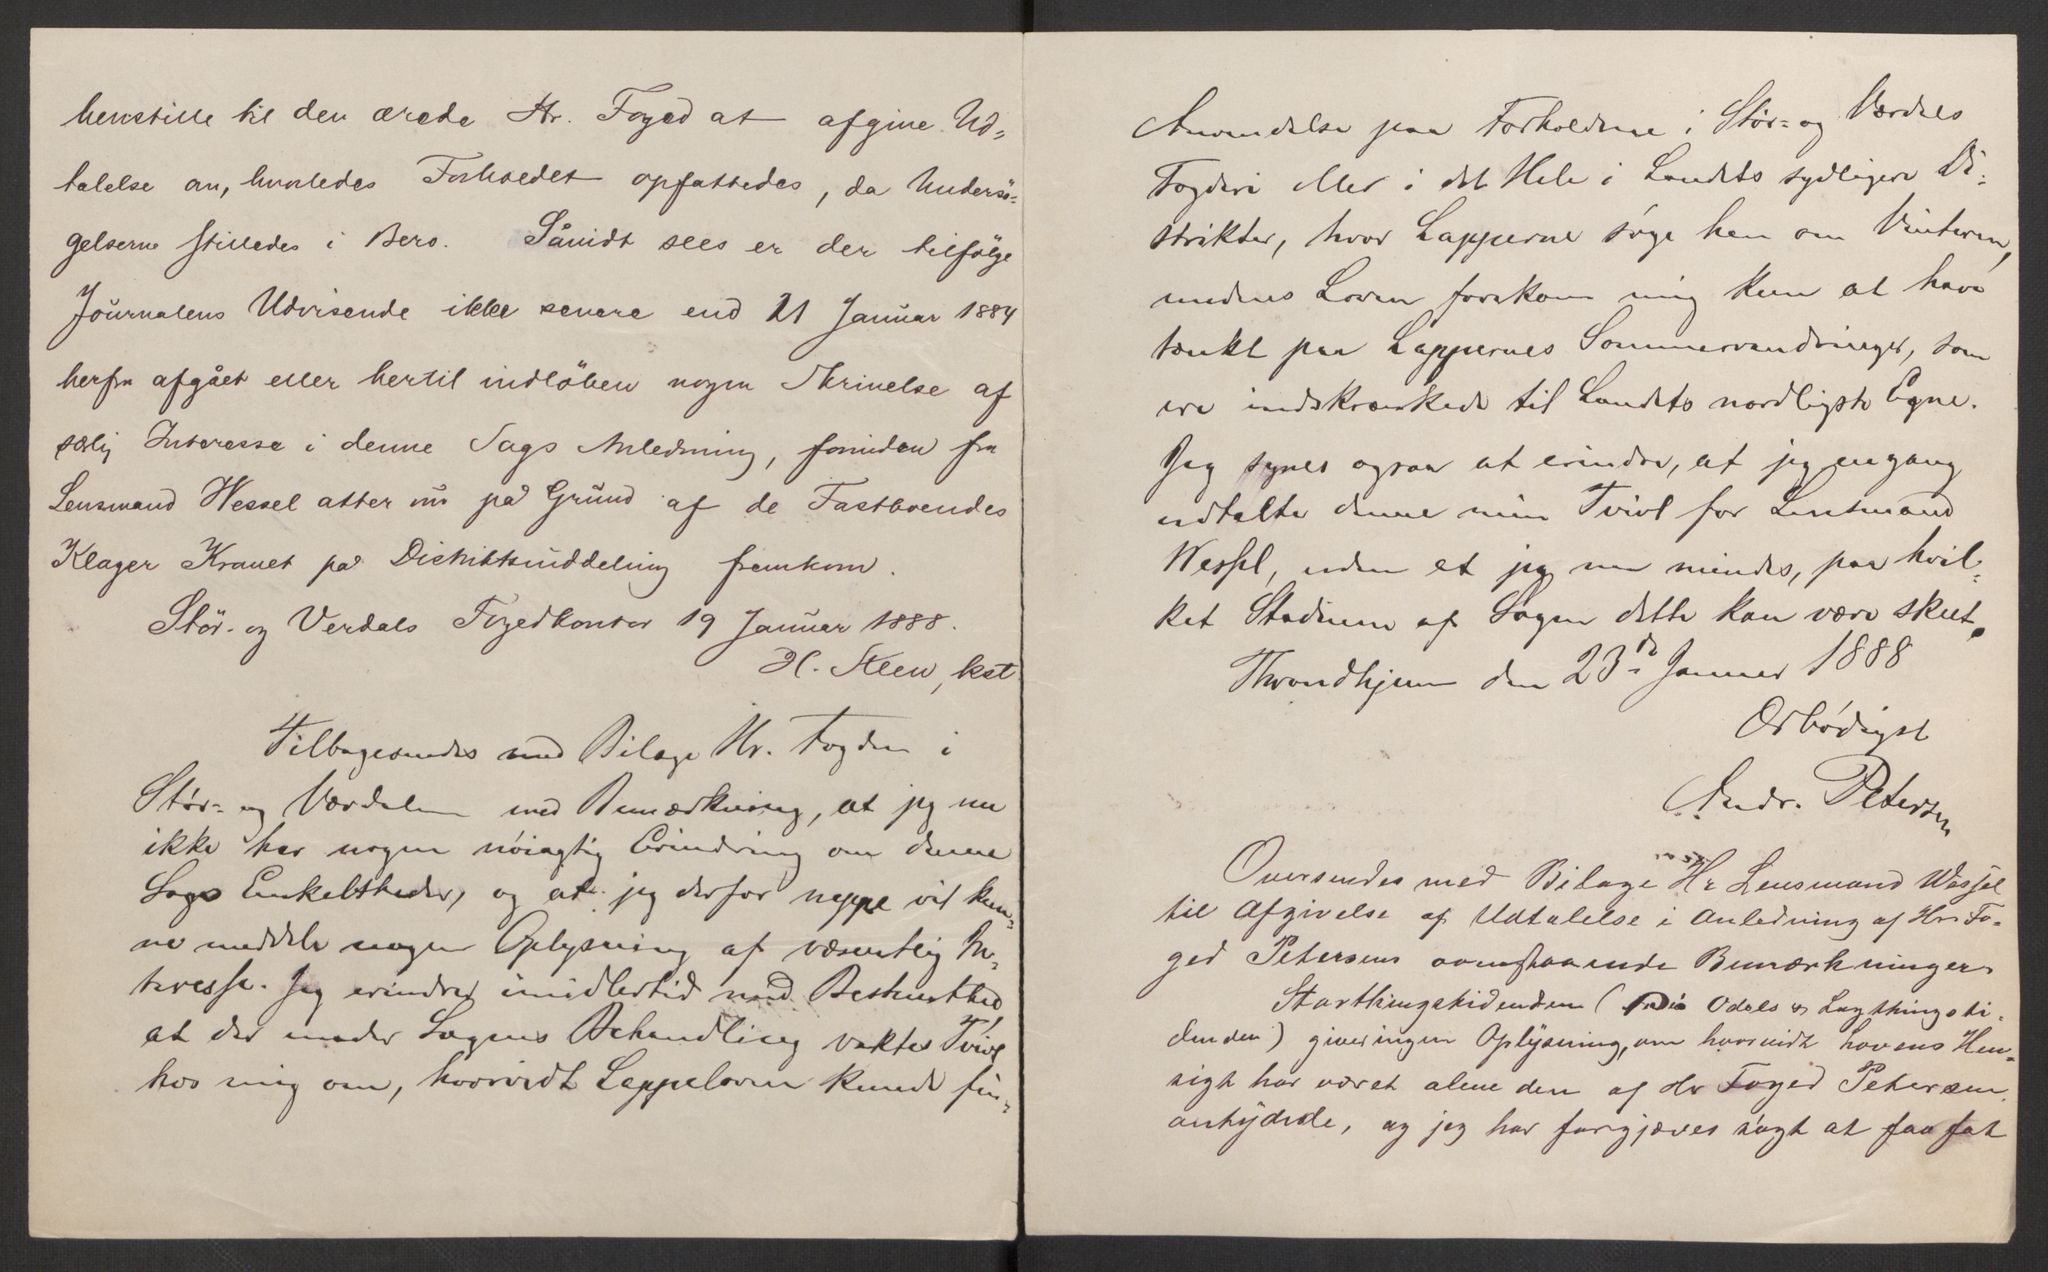 henstille til den ærede Hr. Foged at afgive Ud-
talelse om, hvorledes Forholdet opfattedes, da Undersö-
gelserne stilledes i Bero. Såvidt sees er der tilfölge
Journalens Udvisende ikke senere end 21 Januar 1884
herfra afgået eller hertil indlöben nogen Skrivelse af
særlig Interesse i denne Sags Anledning, forinden fra
Lensmand Wessel atter nu på Grund af de Fastboendes
Klager Kravet på Distriktsinddeling fremkom.
Stör- og Verdals Fogedkontor 19 Januar 1888.
H. Steen, kst
Tilbagesendes med Bilage Hr. Fogden i
Stör- og Værdalen med Bemærkning, at jeg nu
ikke har nogen nöiagtig Erindring om denne
Sags Enkeltheder, og at jeg derfor neppe vil kun-
ne meddele nogen Oplysning af væsentlig In-
teresse. Jeg erindrer imidlertid med Bestemthed
at der under Sagens Behandling vaktes Tvivl
hos mig om, hvorvidt Lappeloven kunde fin-
Anvendelse paa Forholdene i Stör- og Værdals
Fogderi eller i det Hele i Landets sydligere Di-
strikter, hvor Lapperne söge hen om Vinteren,
medens Loven forekom mig kun at have
tænkt paa Lappernes Sommervandringer, som
ere indskrænkede til Landets nordligste Egne.
Jeg synes ogsaa at erindre, at jeg engang
udtalte denne min Tvivl for Lensmand
Wessel, uden at jeg nu mindes, paa hvil-
ket Stadium af Sagen dette kan være skeet.
Throndhjem den 23de Januar 1888
Ærbödigst
Andr. Petersen
Oversendes med Bilage Hr Lensmand Wessel
til Afgivelse af Udtalelse i Anledning af Hr. Fo-
ged Petersens ovenstaaende Bemærkninger.
Storthingstidenden ( Odels & Lagthingsti-
denden) giver ingen Oplysning, om hvorvidt Lovens Hen-
sigt har været alene den af Hr Foged Petersen
antydede, og jeg har forgjæves sögt at faa fat